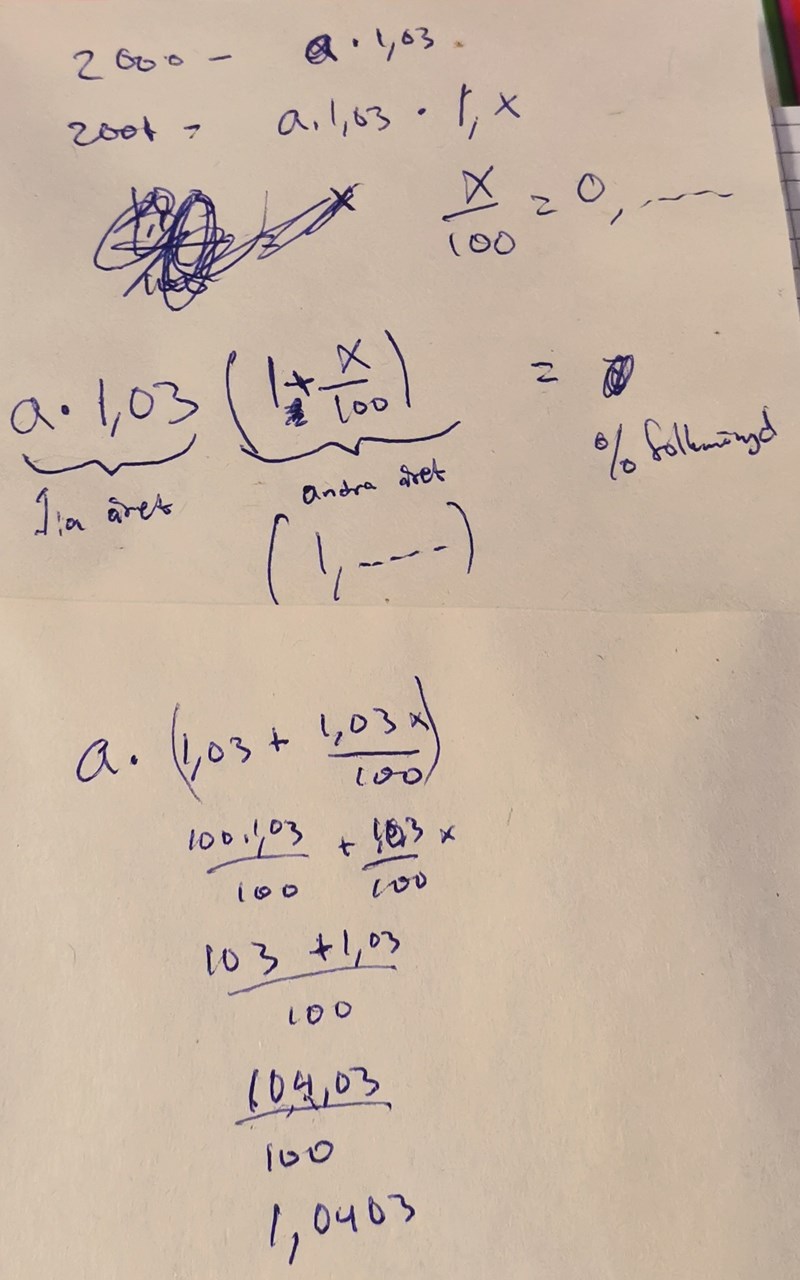 2000 - a · 1,03
2001 - a · 1,03 · 1, x
x/100 = 0, -----
a · 1,03 (1 + x/100) =
% folkmängd
1:a året
andra året
(1, -----)
a · (1,03 + 1,03x/100)
100 · 1,03/100 + 1,03/100 x
103 + 1,03/100
104,03/100
1,0403